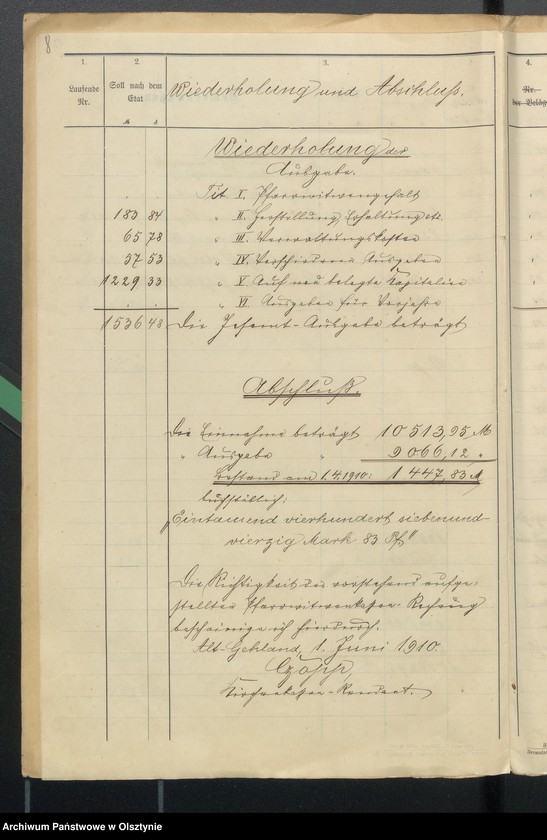 8
1. 2. 3. 4.
Laufende Nr. Soll nach dem Etat Wiederholung und Abschluß. Nr. der Beläge
M ₰
Wiederholung der
Ausgabe.
. . Tit I. Pfarrwitwengehalt
183 84 " II. Herstellung, Erhaltung etc.
65 78 " III. Verwaltungskosten
57 53 " IV. Verschiedene Ausgaben
1229 33 " V. Auf neu belegte Kapitalien
. . " VI. Ausgaben für Vorjahre
1536 48 Die Gesamt-Ausgabe beträgt
Abschluß.
Die Einnahme beträgt 10 513,95 M
" Ausgabe " 9 066,12 "
Bestand am 1.4.1910: 1 447,83 M
buchstäblich:
"Eintausend vierhundert siebenund-
vierzig Mark 83 Pf"
Die Richtigkeit der vorstehend aufge-
stellten Pfarrwitwenkassen-Rechnung
bescheinige ich hierdurch.
Alt-Gehland, 1. Juni 1910.
Czopp,
Kirchenkassen-Rendant.
Archiwum Państwowe w Olsztynie